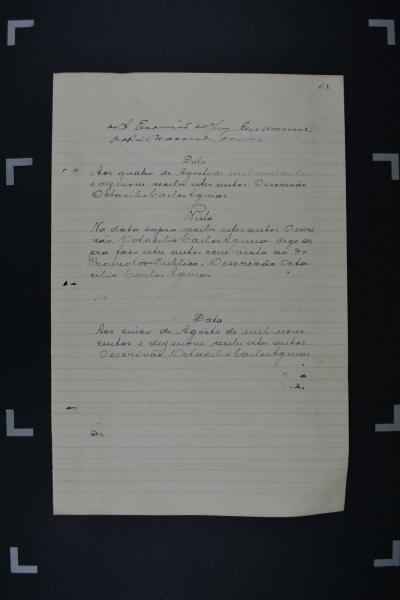 63
Data
Aos quatro de Agosto de mil novecentos
e dezenove recebi estes autos. O escrivão
Octacilio Carlos Aguiar
Vista
Na data supra recebi estes autos. O escri
vão, Octacilio Carlos Aguiar digo es
cra faço estes autos com vista ao Dr
Promotor Publico. O escrivão Octa
cilio Carlos Aguiar
Data
Aos cinco de Agosto de mil nove
centos e dezenove recebi estes autos.
O escrivão, Octacilio Carlos Aguiar